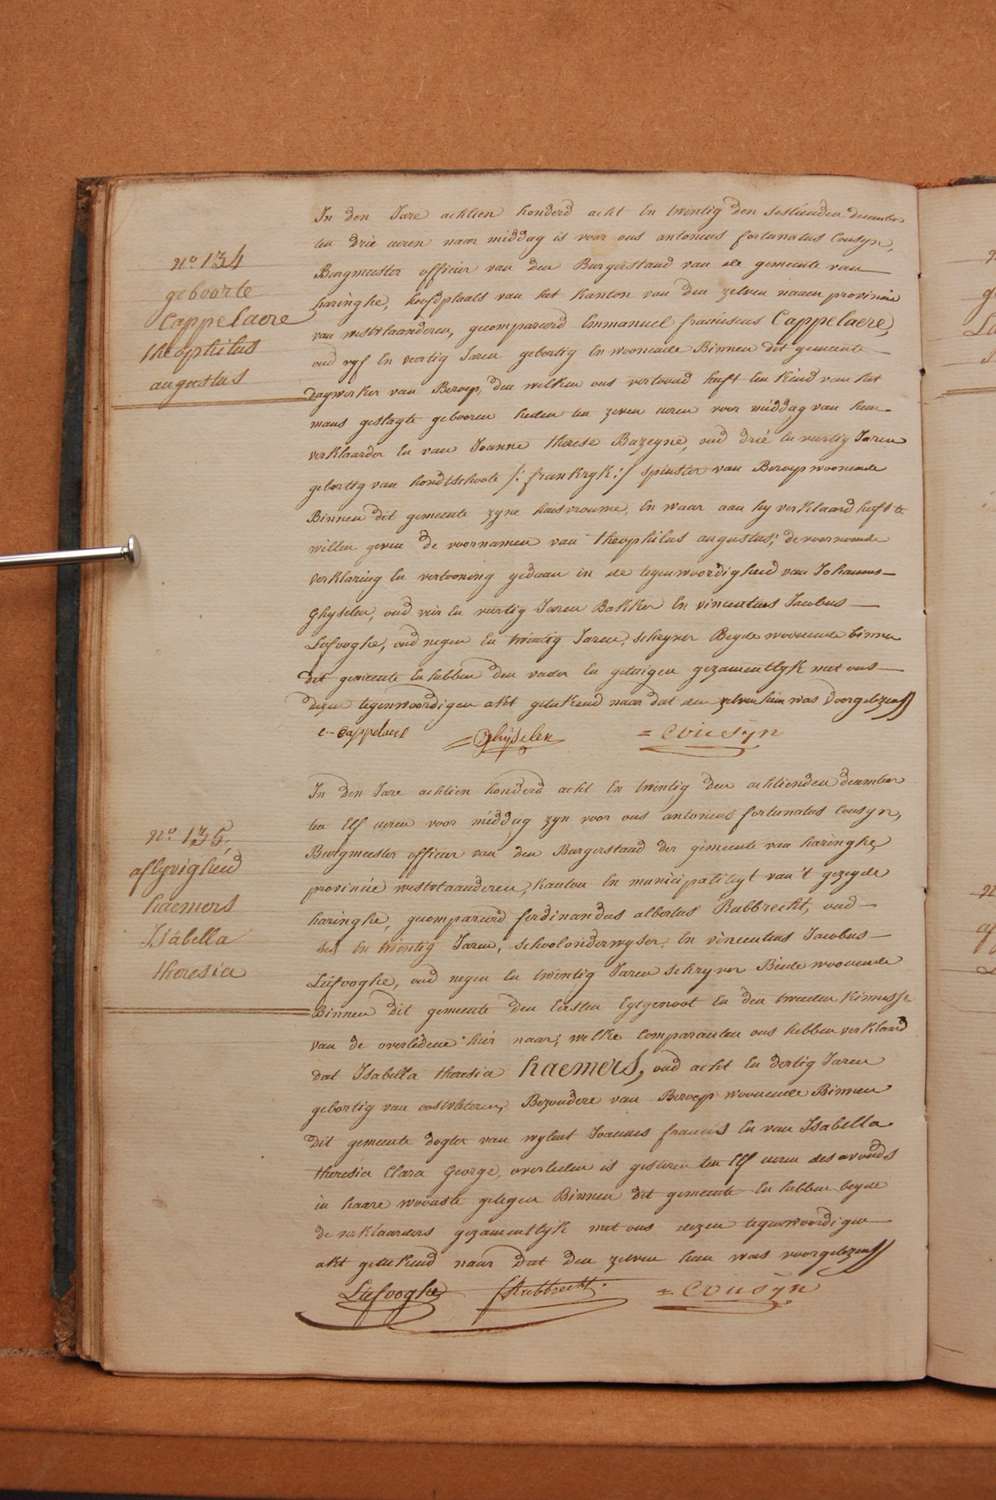 nº 134
geboorte
Cappelaere
theophilus
augustus
In den Jare achtien honderd acht En twintig den sestienden december
ten drie uren naar middag is voor ons antonius fortunatus Cousyn,
Borgmeester officier van den Burgerstand van de gemeente van
haringhe, hoofdplaets van het kanton van den zelven naam provincie
van westvlaanderen, gecompareerd Emmanuel franciscus Cappelaere,
oud vyf En veertig Jaren gebortig En woonende Binnen dit gemeente
dagwerker van Beroep, den welken ons vertoond heeft Een kind van het
mans geslagte gebooren heden ten zeven uren voor middag van hem
verklaarder En van Joanne therese Bazeyne, oud drie En veertig Jaren
gebortig van hondtschoote /: frankryk :/ spinster van Beroep woonende
Binnen dit gemeente zyne huisvrouwe, En waar aan hy verklaard heeft te
willen geven de voornamen van theophilus augustus; de voornoemde
verklaring En vertooning gedaan in de tegenwoordigheid van Johannes
Ghyselen, oud vier En veertig Jaren Bakker En vincentius Jacobus
Lafooghe, oud negen En twintig Jaren, schryver Beyde woonende binnen
dit gemeente En hebben den vader En getuigen gezamentlyk met ons
dezen tegenwoordigen akt geteekend naar dat den zelven hun was voorgelezen
E. Cappelaere Ghyselen = Cousyn
nº 135.
aflyvigheid
haemers
Isabella
theresia
In den Jare achtien honderd acht En twintig den achtienden december
ten Elf uren voor middag zyn voor ons antonius fortunatus Cousyn,
Burgmeester officier van den Burgerstand der gemeente van haringhe
provincie westvlaanderen, kanton En municipaliteyt van 't gezeyde
haringhe, gecompareerd ferdinandus albertus Rabbrecht, oud
En twintig Jaren, schoolonderwyser, En vincentius Jacobus
Lafooghe, oud negen En twintig Jaren schryver Beide woonende
Binnen dit gemeente den Eersten Eytgenoot En den tweeden kennisse
van de overledene hier naar; welke comparanten ons hebben verklaard
dat Isabella theresia haemers, oud acht En dertig Jaren
gebortig van oostvleteren, Bezondere van Beroep woonende Binnen
dit gemeente dogter van wylent Joannes francis En van Isabella
theresia Clara George, overleden is gisteren ten Elf uren des avonds
in haare wooninge gelegen Binnen dit gemeente En hebben beyde
de verklaarders gezamentlyk met ons dezen tegenwoordigen
akt geteekend naar dat den zelven hun was voorgelezen
Lafooghe Rabbrecht = Cousyn